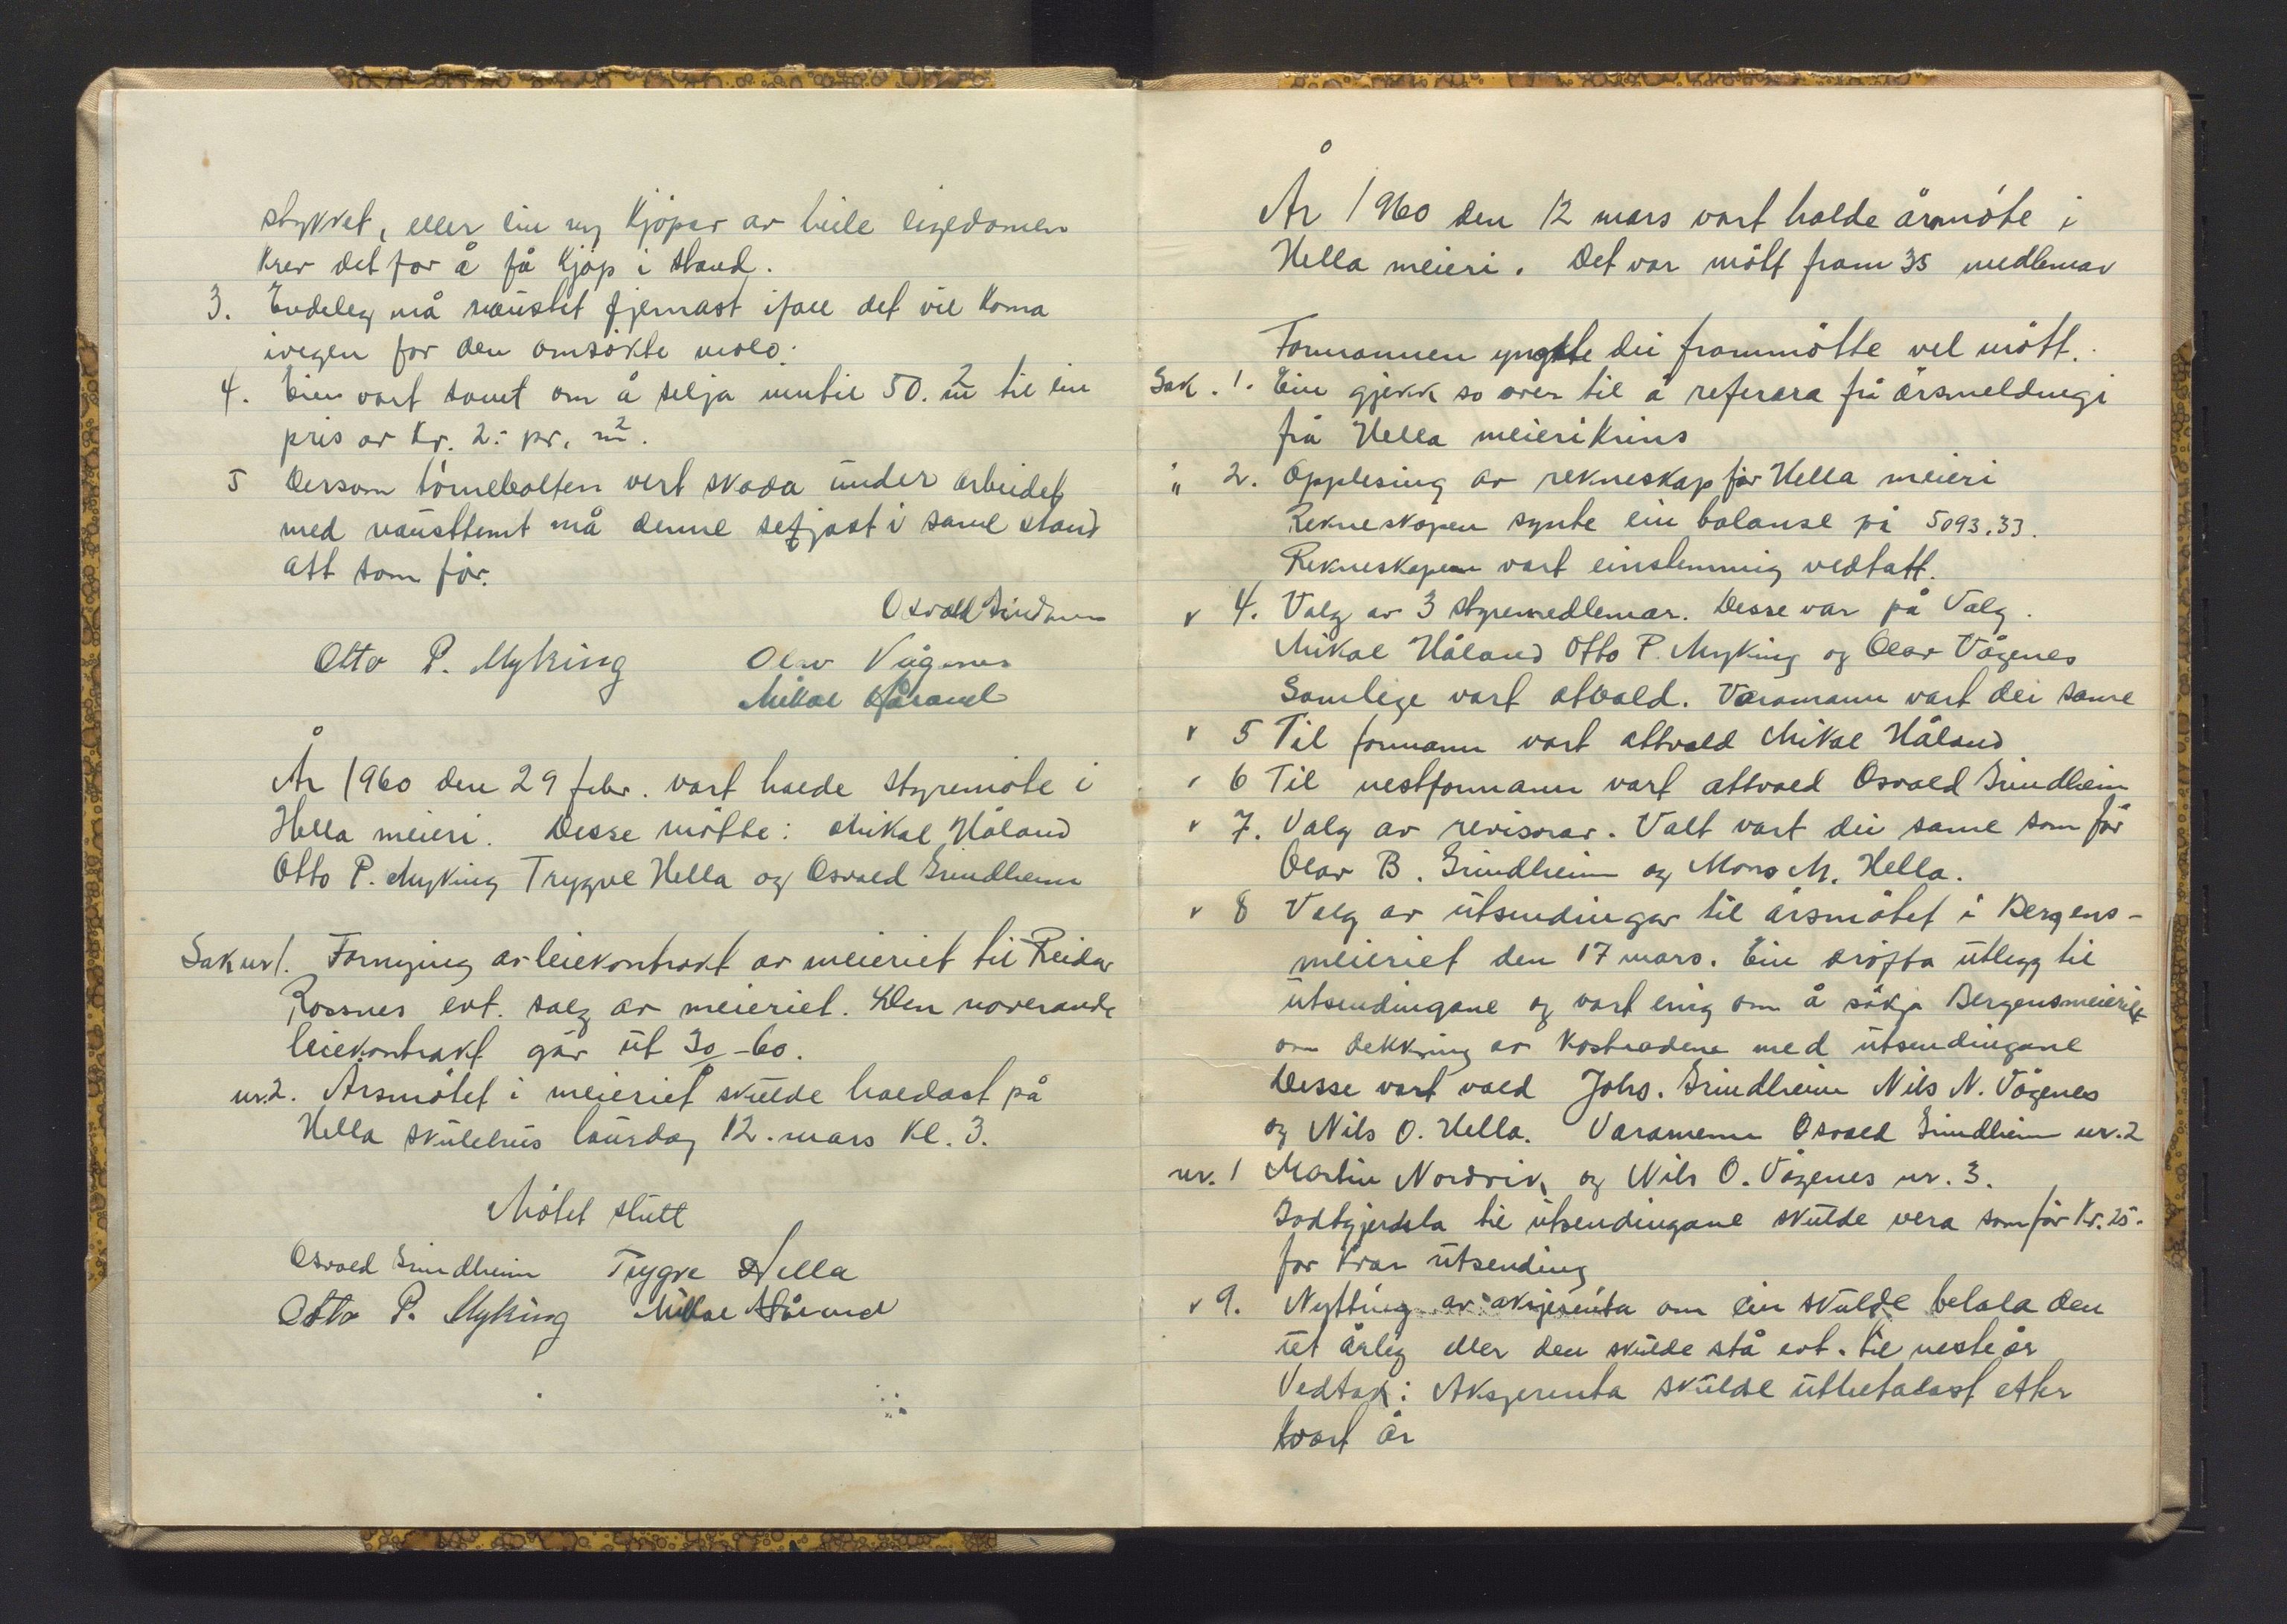 stykket, eller ein ny kjöpar av heile eigedomen
krev det for å få kjöp i stand.
3. Endeleg må naustet fjernast ifall det vil koma
ivegen for den omsökte molo.
4. Ein vart samt om å selja inntil 50. m² til ein
pris av kr. 2.- pr. m².
5 Dersom törnebolten vert skada under arbeidet
med nausttomt må denne setjast i same stand
att som för.
Osvald Grindheim
Otto P. Myking Olav Vågenes
Mikal Håland
År 1960 den 29 febr. vart halde styremöte i
Hella meieri. Desse mötte: Mikal Håland
Otto P. Myking Trygve Hella og Osvald Grindheim
Sak nr 1. Fornying av leiekontrakt av meieriet til Reidar
Rossnes evt. salg av meieriet. Den noverande
leiekontrakt går ut 30/ -60.
nr. 2. Årsmötet i meieriet skulde haldast på
Hella skulehus laurdag 12. mars kl. 3.
Mötet slutt
Osvald Grindheim Trygve Hella
Otto P. Myking Mikal Håland
År 1960 den 12 mars vart halde årsmöte i
Hella meieri. Det var mött fram 35 medlemar
Formannen ynskte dei frammötte vel mött.
Sak. 1. Ein gjekk so over til å referara frå årsmeldingi
frå Hella meierikrins
" 2. Opplesing av rekneskap för Hella meieri
Rekneskapen synte ein balanse på 5093.33.
Rekneskapen vart einstemmig vedtatt.
" 4. Valg av 3 styremedlemar. Desse var på Valg.
Mikal Håland Otto P. Myking og Olav Vågenes
Samlege vart atvald. Varamann vart dei same
" 5 Til formann vart attvald Mikal Håland
" 6 Til nestformann vart attvald Osvald Grindheim
" 7. Valg av revisorar. Valt vart dei same som för
Olav B. Grindheim og Mons M. Hella.
" 8 Valg av utsendingar til årsmötet i Bergens-
meieriet den 17 mars. Ein dröfta utlegg til
utsendingane og vart enig om å sökja Bergensmeieriet
om dekkning av kostnadene med utsendingane
Desse vart vald Johs. Grindheim Nils N. Vågenes
og Nils O. Hella. Varamenn Osvald Grindheim nr. 2
nr. 1 Martin Nordvik og Nils O. Vågenes nr. 3.
Godtgjerdsla til utsendingane skulde vera som för kr. 25.-
for kvar utsending
" 9. Nytting av aksjerenta om ein skulde betala den
ut årleg eller den skulde stå evt. til neste år
Vedtak: Aksjerenta skulde utbetalast etter
kvart år